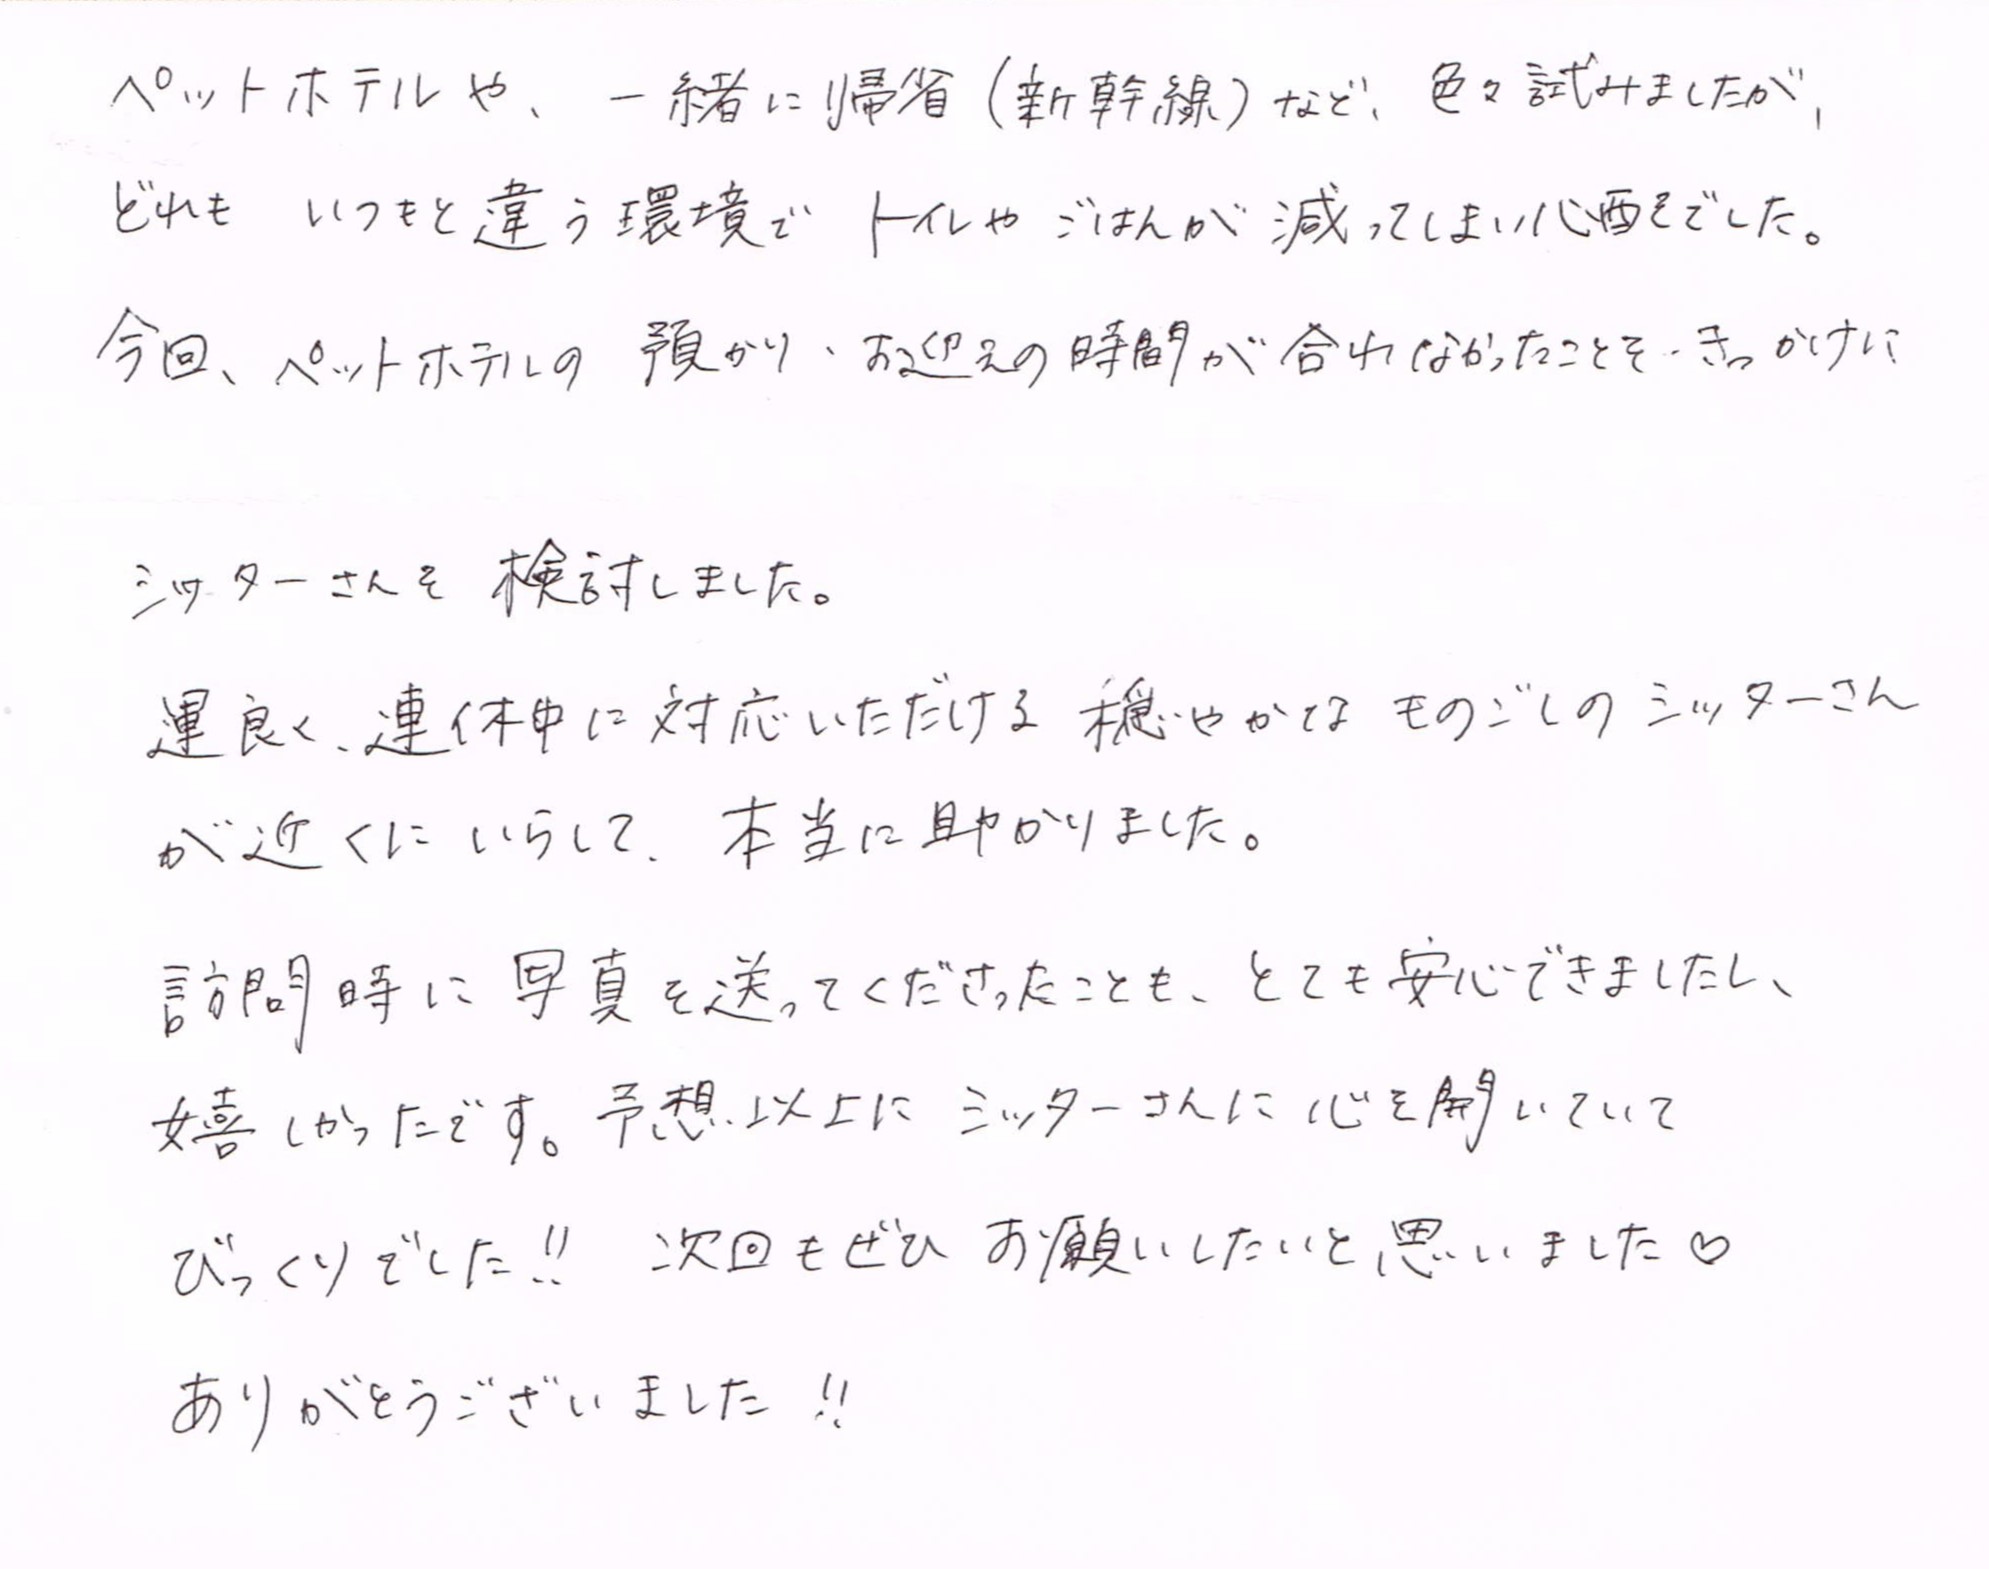 ペットホテルや、一緒に帰省(新幹線)など、色々試みましたが、
どれも いつもと違う環境で トイレや ごはんが 減ってしまい心配でした。
今回、ペットホテルの 預かり・お迎えの時間が合わなかったことを きっかけに
シッターさんを 検討しました。
運良く、連休中に対応いただける 穏やかな ものごしの シッターさん
が近くにいらして、本当に助かりました。
訪問時に 写真を送ってくださったことも、とても安心できましたし、
嬉しかったです。予想以上に シッターさんに 心を開いていて
びっくりでした!! 次回もぜひ お願いしたいと思いました♡
ありがとうございました!!